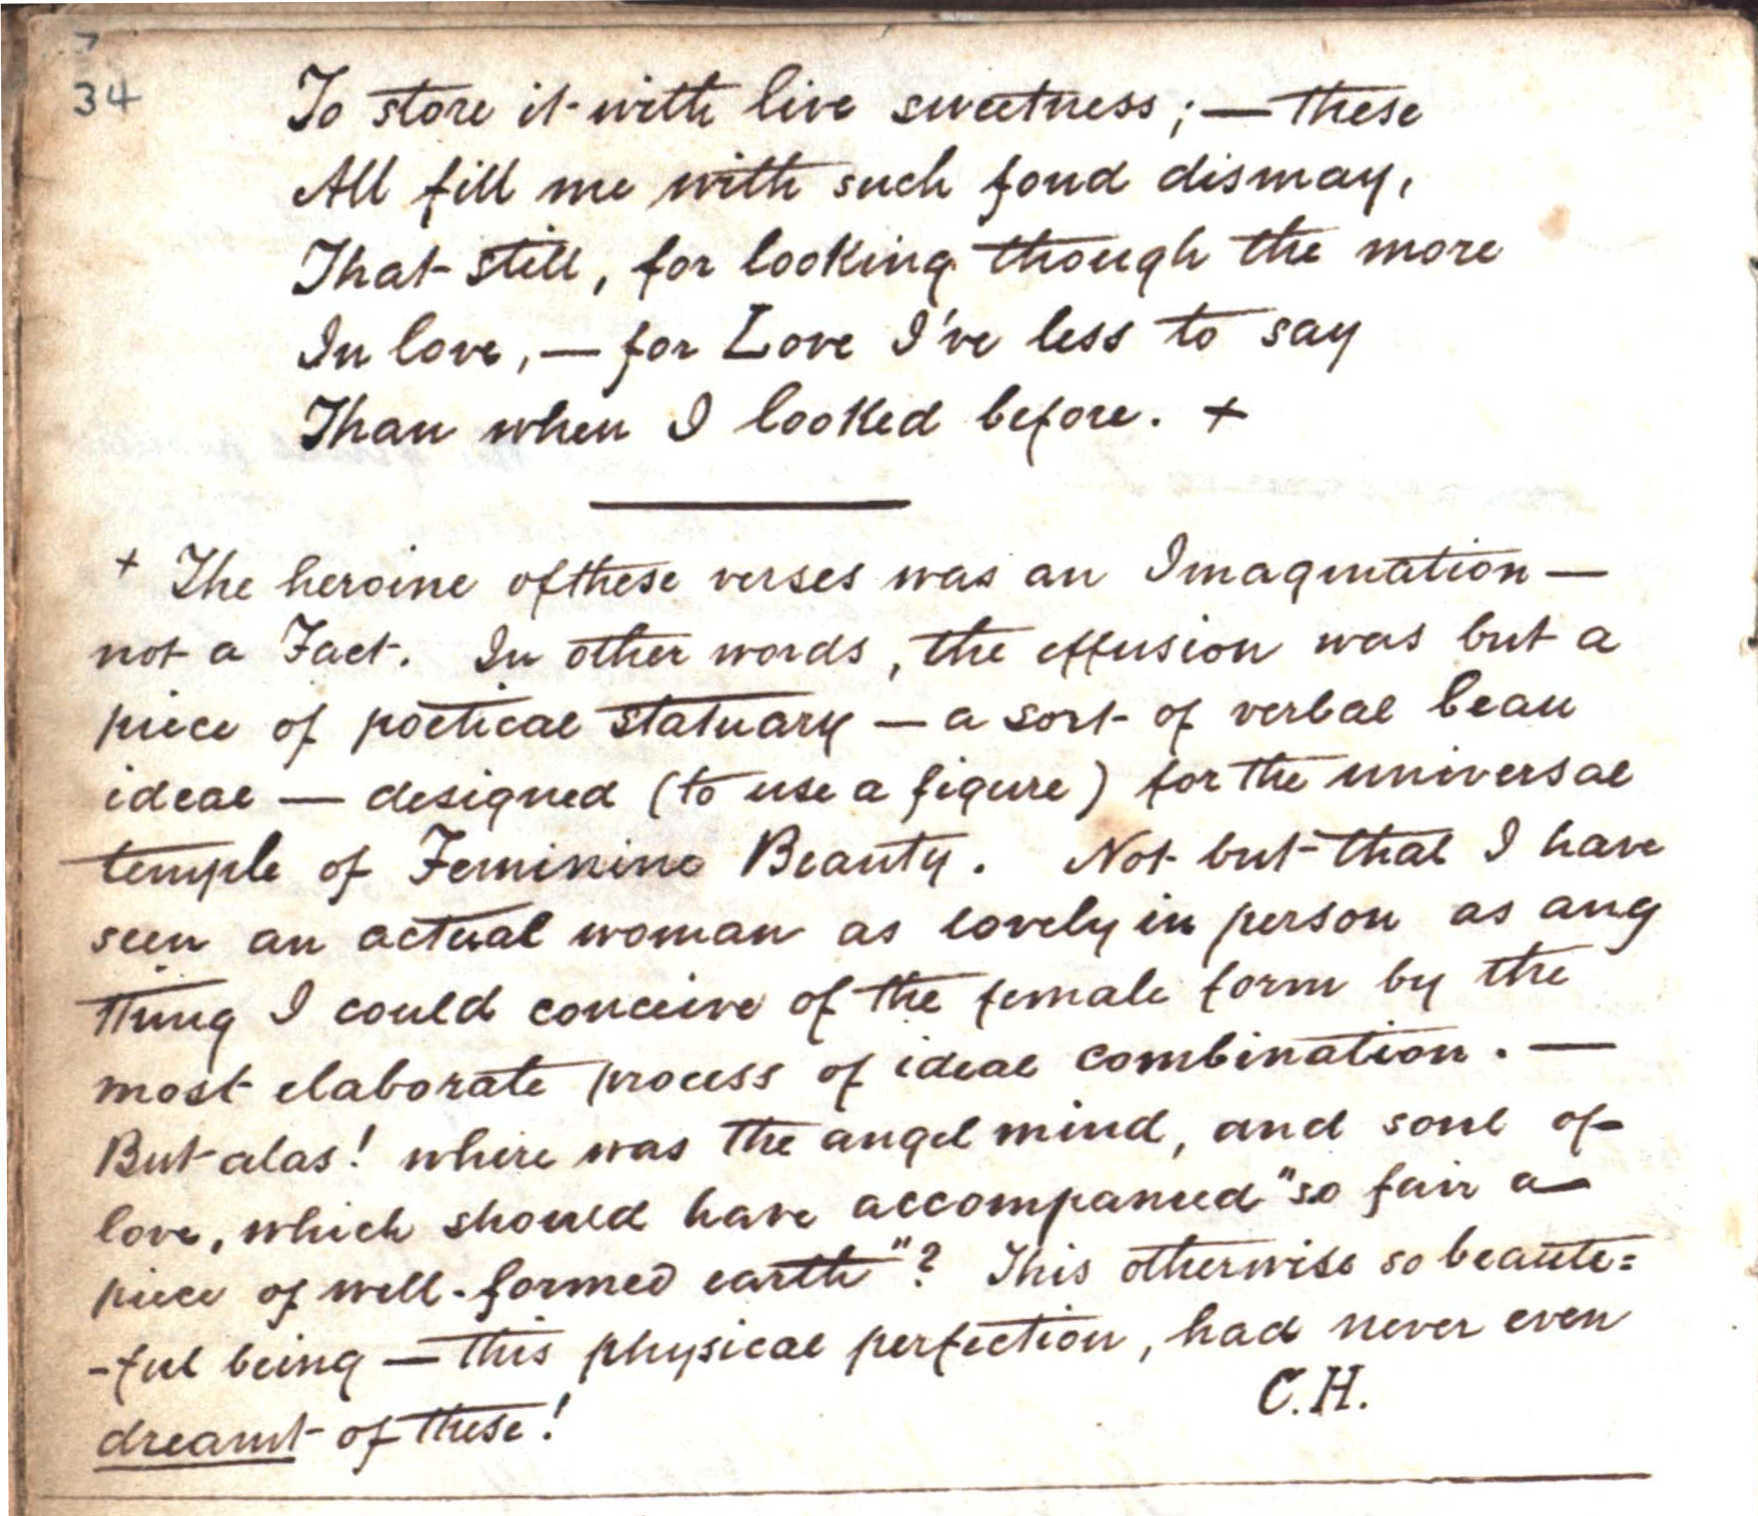 34
To store it with live sweetness; — these
All fill me with such fond dismay,
That still, for looking though the more
In love, — for Love I've less to say
Than when I looked before. +
+ The heroine of these verses was an Imagination —
not a Fact. In other words, the effusion was but a
piece of poetical statuary — a sort of verbal beau
ideal — designed (to use a figure) for the universal
temple of Feminine Beauty. Not but that I have
seen an actual woman as lovely in person as any
thing I could conceive of the female form by the
most elaborate process of ideal combination. —
But alas! where was the angel mind, and soul of
love, which should have accompanied "so fair a
piece of well-formed earth"? This otherwise so beaute=
-ful being — this physical perfection, had never even
dreamt of these!
C.H.